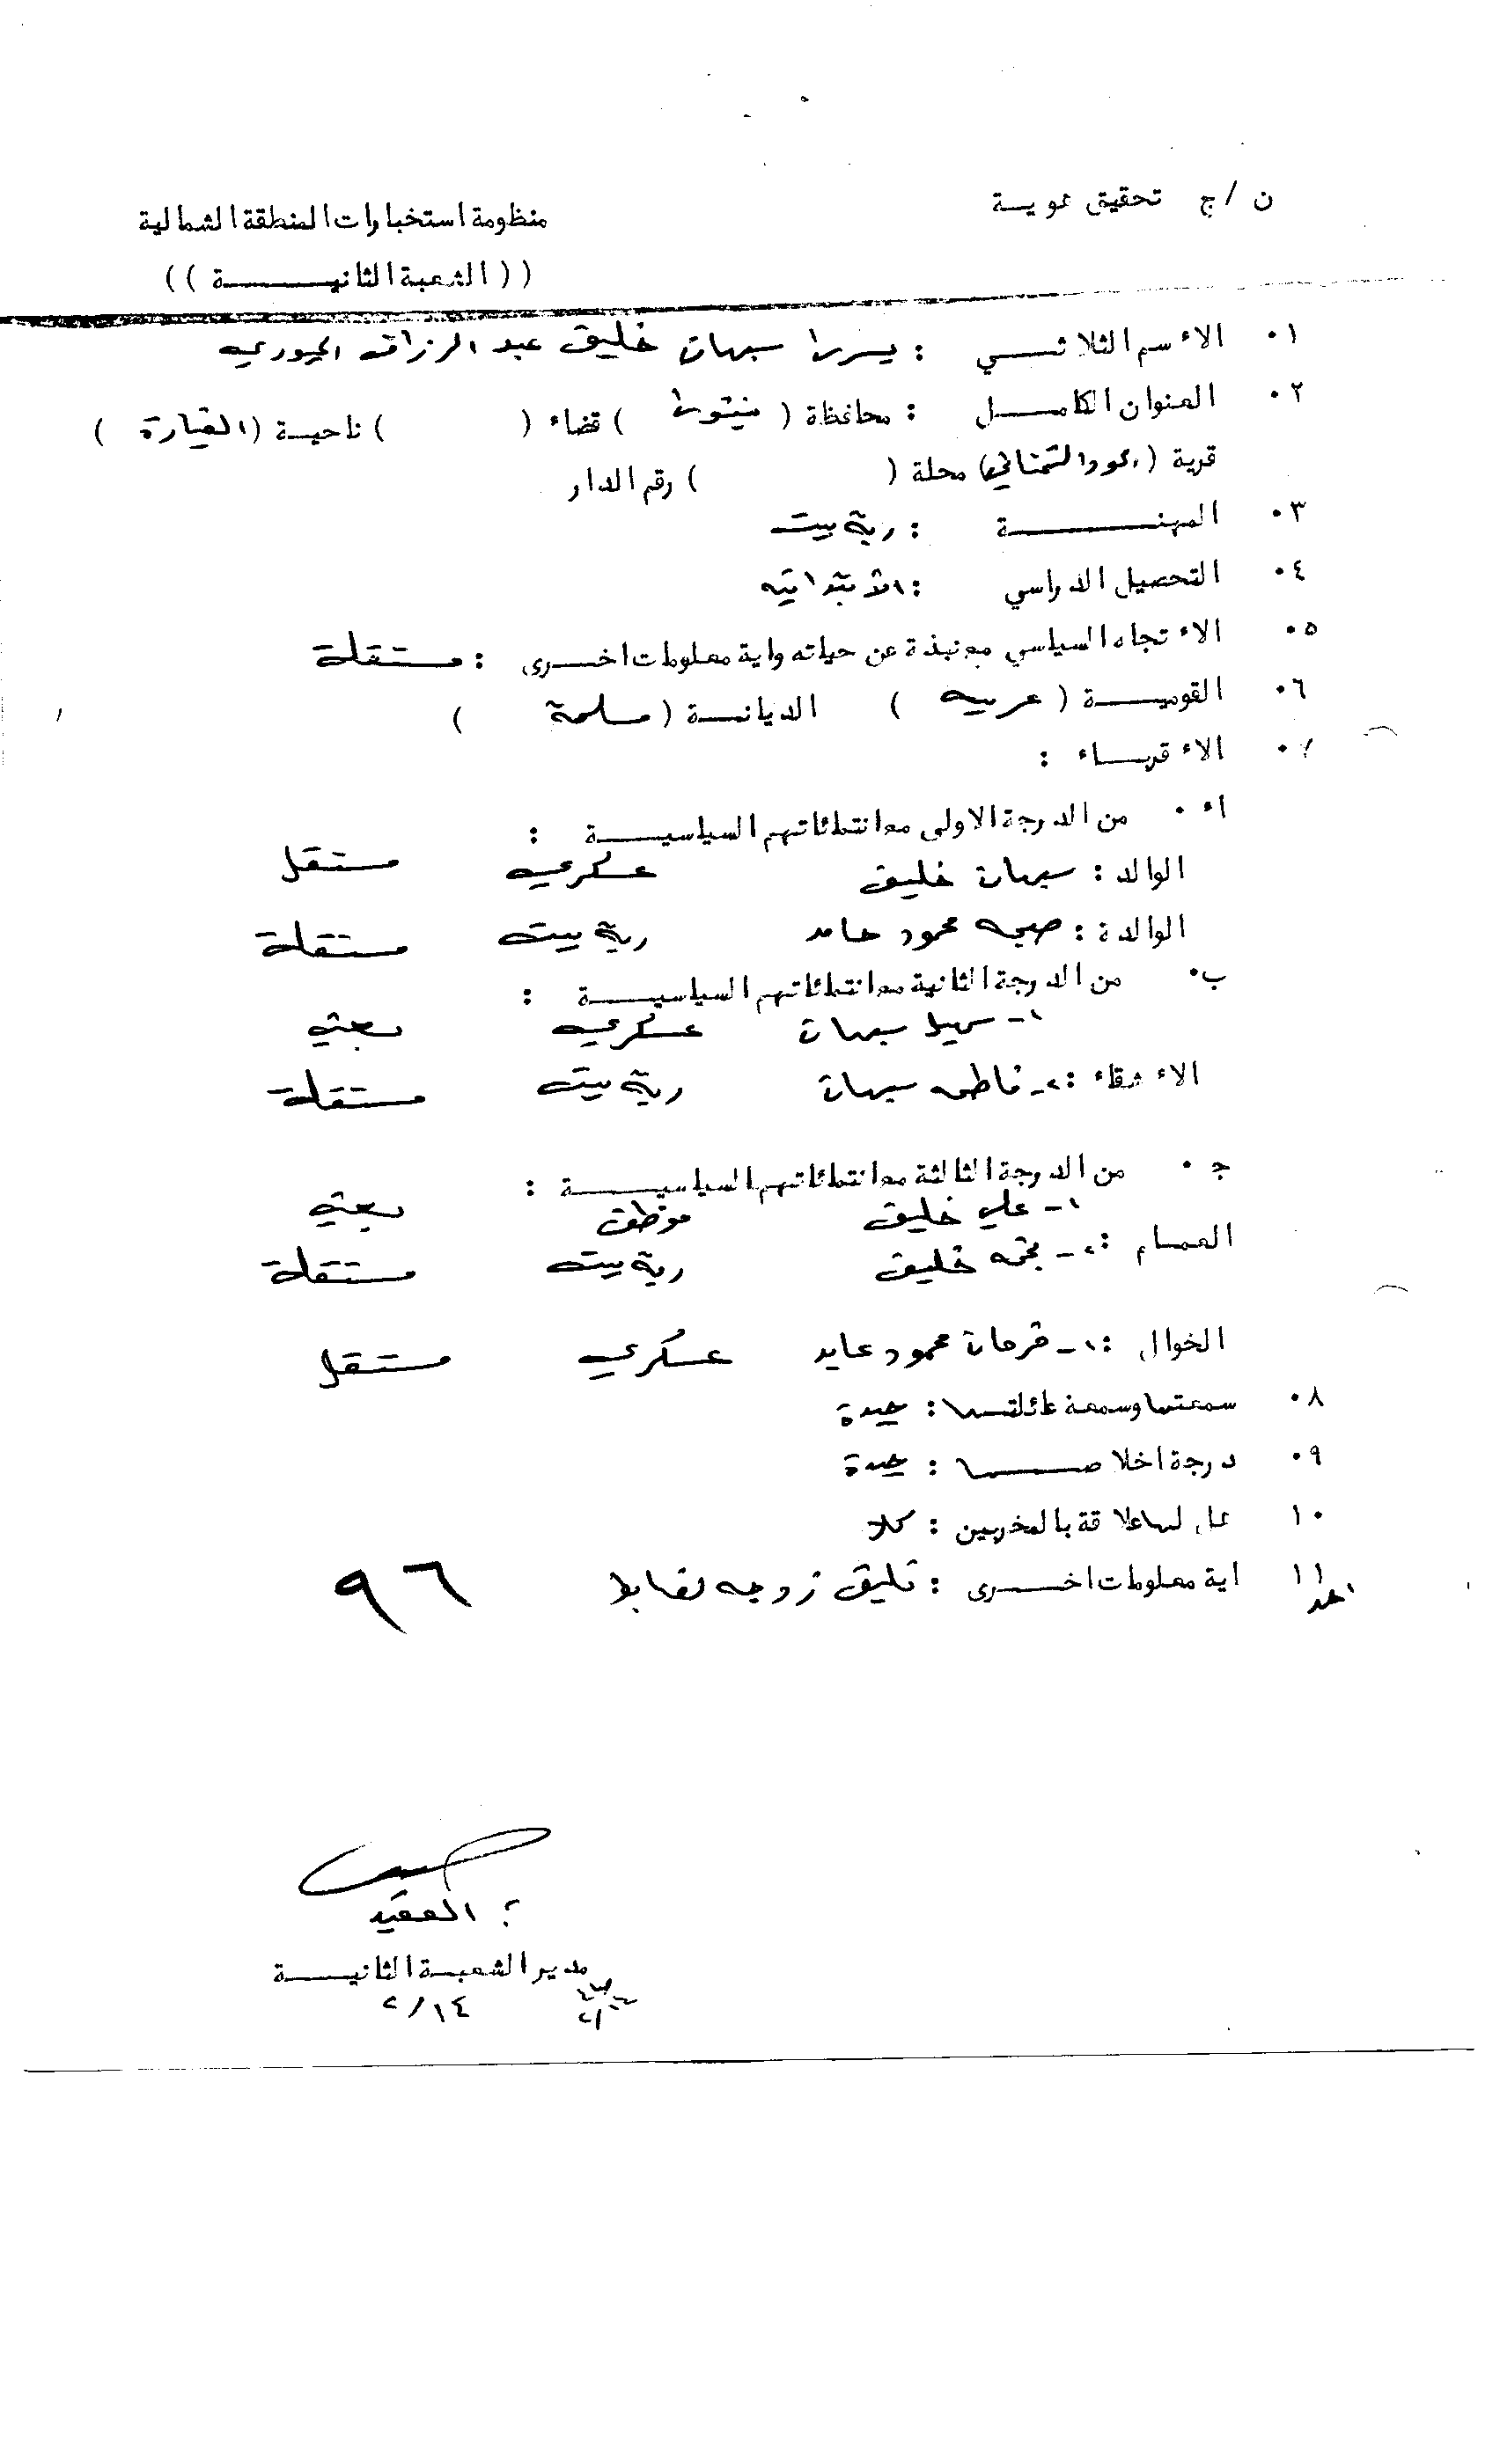 ن / ج تحقيق هوية
منظومة استخبارات المنطقة الشمالية
(( الشعبة الثانيـــــة ))
٠١ الاسم الثلاثـــي : يسرا سبهان خليف عبد الرزاق الجبوري
٠٢ العنوان الكامـــل : محافظة ( نينوى ) قضاء ( ) ناحيـة ( القيارة )
قرية ( ) محلة ( ) رقم الدار
٠٣ المهنـــــــة : ربة بيت
٠٤ التحصيل الدراسي : الابتدائيه
٠٥ الاتجاه السياسي مع نبذة عن حياته واية معلومات اخـــرى : مستقلة
٠٦ القوميـــة ( عربيه ) الديانــة ( مسلمة )
٠٧ الاقربـــاء :
أ ٠ من الدرجة الاولى مع انتمائاتهم السياسيـــــة :
الوالد : سبهان خليف عسكري مستقل
الوالدة : صبحه محمود حامد ربة بيت مستقلة
ب ٠ من الدرجة الثانية مع انتمائاتهم السياسيـــــة :
١ - سهيل سبهان عسكري بعثي
الاشقاء : ٢ - فاطمه سبهان ربة بيت مستقلة
ج ٠ من الدرجة الثالثة مع انتمائاتهم السياسيـــــة :
١ - علي خليف موظف بعثي
العمـام : ٢ - نجمه خليف ربة بيت مستقلة
الخوال : ١ - فرحان محمود عايد عسكري مستقل
٠٨ سمعتها وسمعة عائلتـــها : جيدة
٠٩ درجة اخلاصـــــها : جيدة
١٠ ٠ هل لها علاقة بالمخربين : كلا
١١ اية معلومات اخـــرى : تليق زوجه لضابط
٩٦
؟ العقيد
مدير الشعبــة الثانيــــة
١٤ / ٢